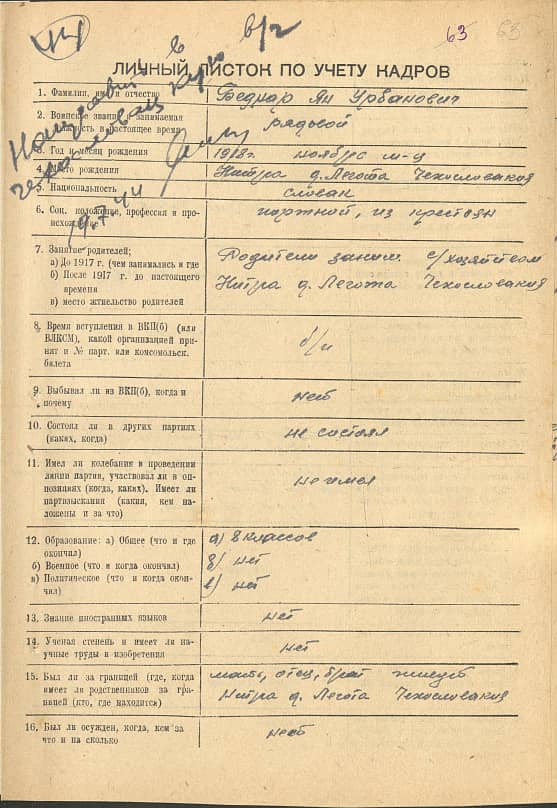 44
в
в/г
63
63
ЛИЧНЫЙ ЛИСТОК ПО УЧЕТУ КАДРОВ
Направить
чехословац
19.7.44
1. Фамилия, имя и отчество
Беднар Ян Урбанович
2. Воинское звание и занимаемая
должность в настоящее время
рядовой
3. Год и месяц рождения
1918г. ноябрь м-ц
4. Место рождения
Нитра д. Легота Чехословакия
5. Национальность
словак
6. Соц. положение, профессия и про-
исхождение
портной, из крестьян
7. Занятие родителей;
а) До 1917 г. (чем занимались и где
б) После 1917 г. до настоящего
времени
в) место жтиельство родителей
Родители заним. с/хозяйством
Нитра д. Легота Чехословакия
8. Время вступления в ВКП(б) (или
ВЛКСМ), какой организацией при-
нят и № парт. или комсомольск.
билета
б/п
9. Выбывал ли из ВКП(б), когда и
почему
нет
10. Состоял ли в других партиях
(каких, когда)
не состоял
11. Имел ли колебания в проведении
линии партии, участвовал ли в оп-
позициях (когда, каких). Имеет ли
партвзыскания (какия, кем на-
ложены и за что)
не имел
12. Образование: а) Общее (что и где
окончил)
б) Военное (что и когда окончил)
в) Политическое (что и когда окон-
чил)
а) 8 классов
б) нет
в) нет
13. Знание иностранных языков
нет
14. Ученая степень и имеет ли на-
учные труды и изобретения
нет
15. Был ли за границей (где, когда
имеет ли родственников за гра-
ницей (кто, где находится)
мать, отец, брат живут
Нитра д. Легота Чехословакия
16. Был ли осужден, когда, кем за
что и на сколько
нет